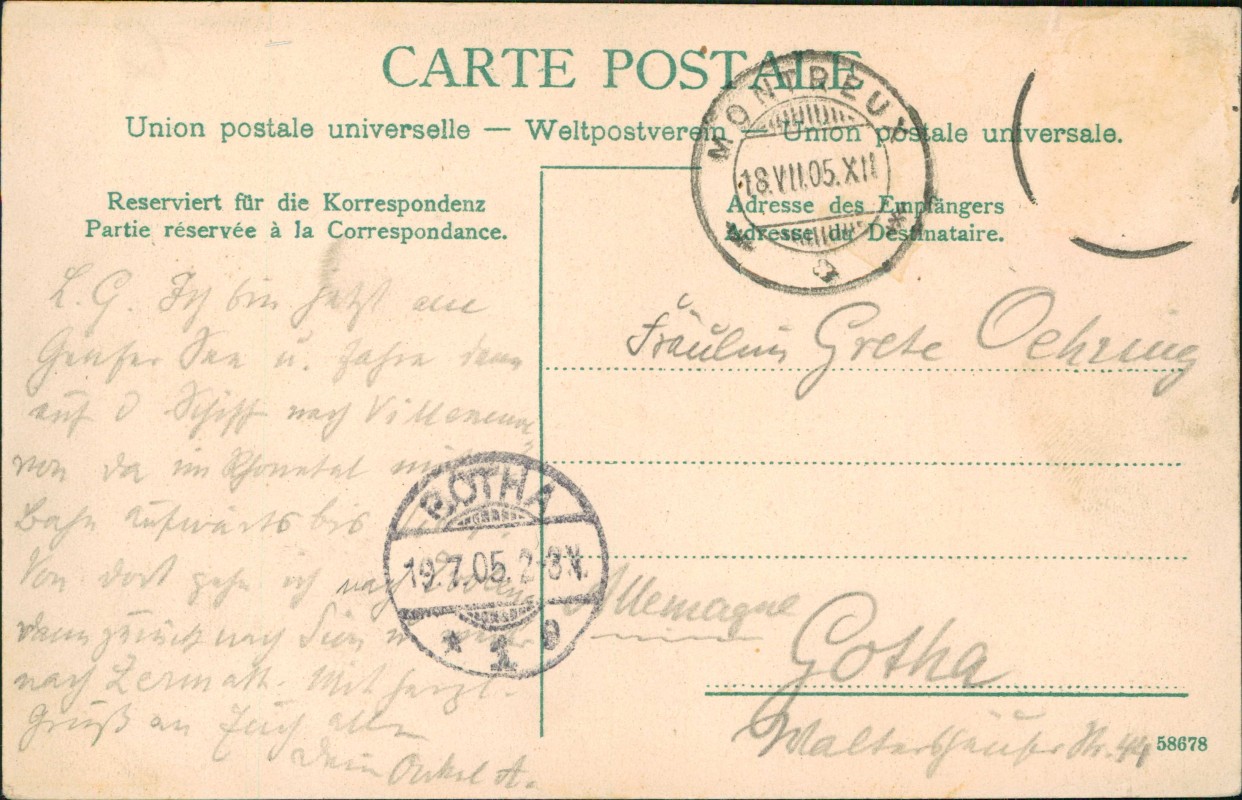 CARTE POSTALE
Union postale universelle — Weltpostverein — Union postale universale.
MONTREUX
18.VII.05.XII
Reserviert für die Korrespondenz
Partie réservée à la Correspondance.
Adresse des Empfängers
Adresse du Destinataire.
L. G. Ich bin jetzt am
Genfer See u. fahre dann
auf d Schiff nach Villeneuve
von da im Rhonetal mit
Bahn aufwärts bis
Von dort gehe ich nach
dann zurück nach
nach Zermatt. Mit herzl.
Gruß an Euch alle
Dein Onkel A.
GOTHA
19.7.05. 2-3 N.
* 1 b
Fräulein Grete Oehring
Allemagne
Gotha
Waltershäuser Str. 44
58678